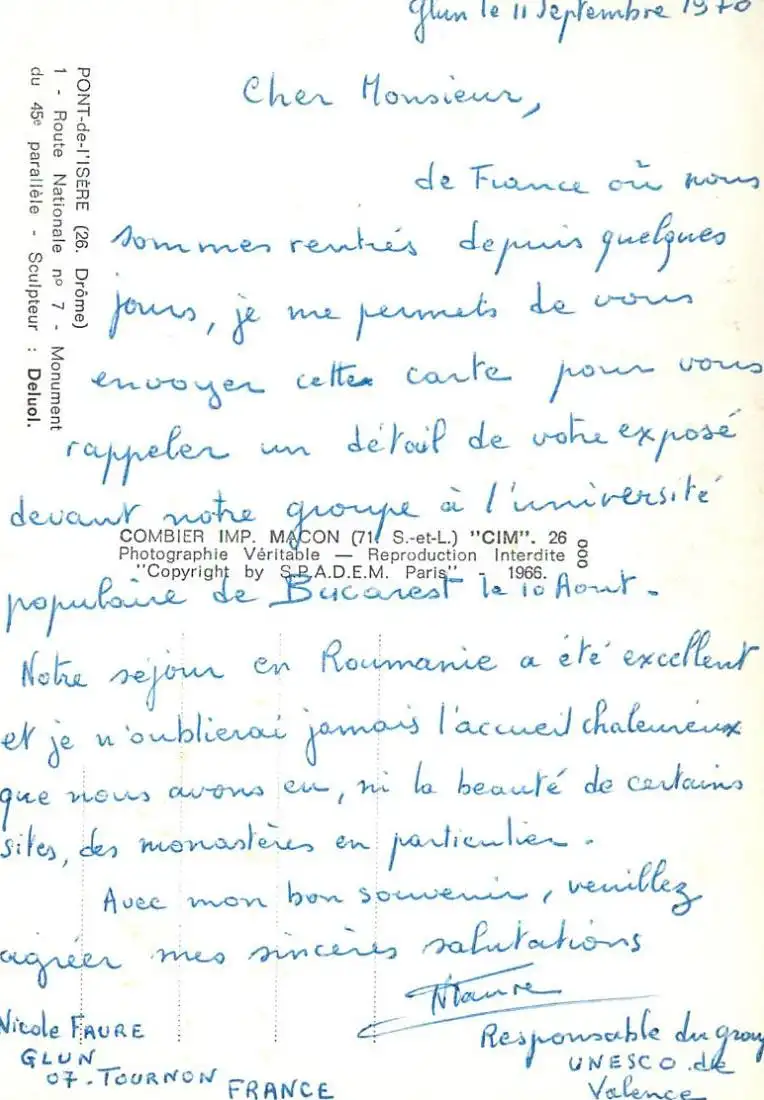 Glun le 11 Septembre 1970
Cher Monsieur,
de France où nous
sommes rentrés depuis quelques
jours, je me permets de vous
envoyer cette carte pour vous
rappeler un détail de votre exposé
devant notre groupe à l'université
populaire de Bucarest le 10 Aout.
Notre séjour en Roumanie a été excellent
et je n'oublierai jamais l'accueil chaleureux
que nous avons eu, ni la beauté de certains
sites, des monastères en particulier.
Avec mon bon souvenir, veuillez
agréer mes sincères salutations
NFaure
Nicole FAURE
GLUN
07-TOURNON FRANCE
Responsable du group
UNESCO de
Valence
PONT-de-l'ISÈRE (26. Drôme)
1 - Route Nationale nº 7 - Monument
du 45e parallèle - Sculpteur : Deluol.
COMBIER IMP. MACON (71 S.-et-L.) "CIM". 26 000
Photographie Véritable — Reproduction Interdite
"Copyright by S.P.A.D.E.M. Paris" - 1966.